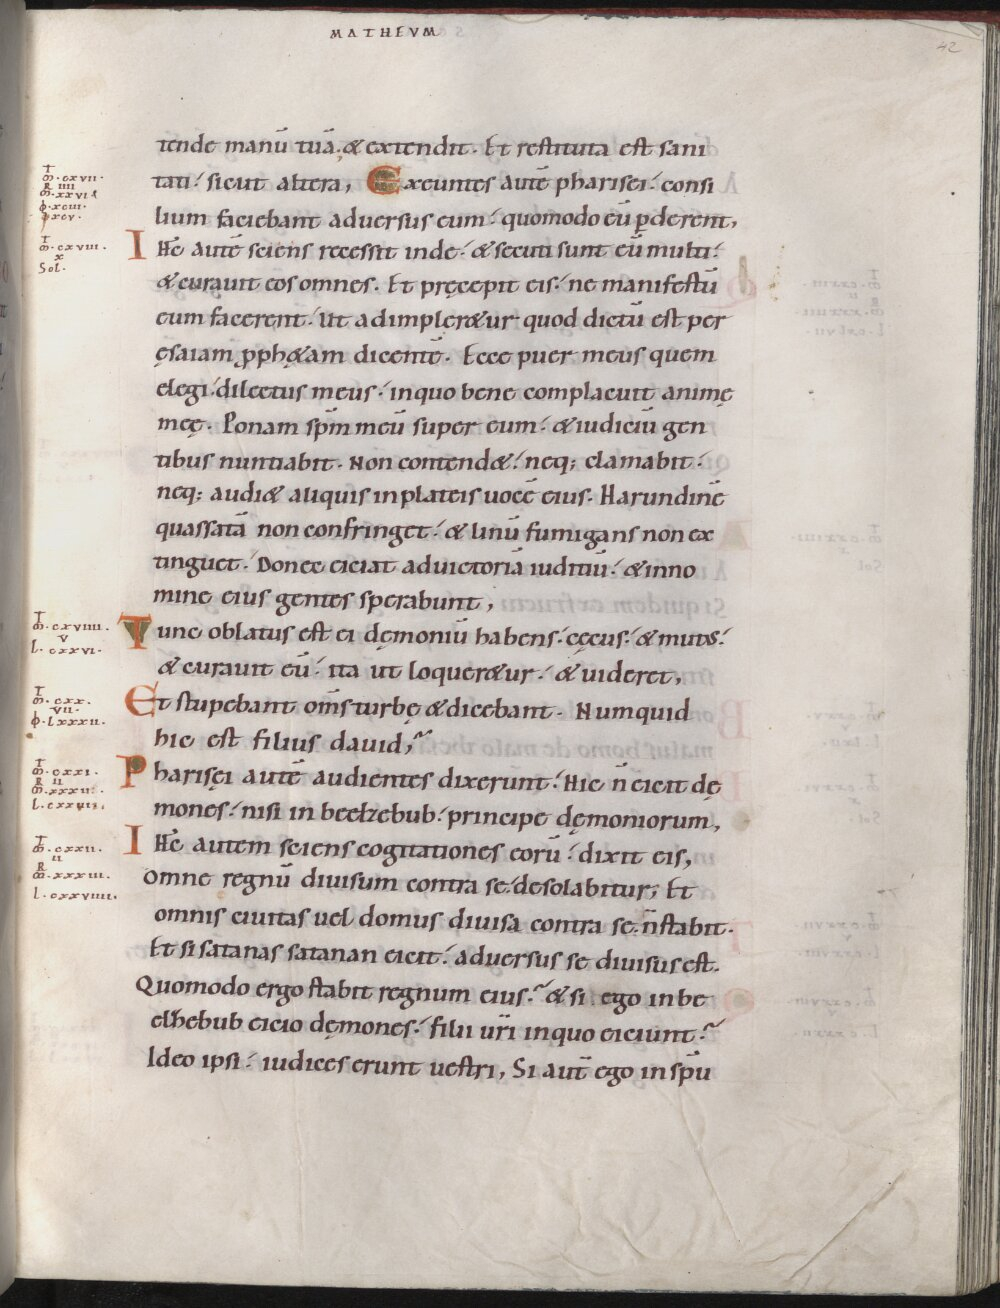 MATHEVM
42
tende manū tuā. & extendit. Et restituta est sani
tati. sicut altera, Exeuntes autē pharisei. consi
lium faciebant adversus eum. quomodo eū ꝑderent,
IHC autē sciens recessit inde. & secuti sunt eū multi.
& curavit eos omnes. Et pręcepit eis. ne manifestū
eum facerent. Ut adimpler&ur quod dictū est per
ęsaiam ꝓph&am dicentē. Ecce puer meus quem
elegi. dilectus meus. in quo bene complacuit animę
meę. Ponam sp̄m meū super eum. & iudiciū gen
tibus nuntiabit. Non contend&. neq; clamabit.
neq; audi& aliquis in plateis uocē eius. Harundinē
quassatā non confringet. & linū fumigans non ex
tinguet. Donec eiciat ad uictoriā iuditiū. & in no
mine eius gentes sperabunt,
Tunc oblatus est ei dęmoniū habens. cęcus. & mutus.
& curauit eū. ita ut loquer&ur. & uideret,
Et stupebant om̄s turbę & dicebant. Numquid
hic est filius dauid,
Pharisęi autē audientes dixerunt. Hic n̄ eicit dę
mones. nisi in beelzebub. principe dęmoniorum,
IHC autem sciens cogitationes eorū. dixit eis,
omne regnū diuisum contra se. desolabitur; Et
omnis ciuitas uel domus diuisa contra se. n̄ stabit.
Et si satanas satanan eicit. aduersus se diuisus est.
Quomodo ergo stabit regnum eius. & si ego in be
elhebub eicio dęmones. filii ur̄i in quo eiciunt.
Ideo ipsi. iudices erunt uestri, Si aut̄ ego in sp̄u
m̄. cxvii.
R iiii
m̄. xxvi
ϕ. xciii.
m̄. cxviii.
x
Sol.
m̄. cxviiii.
v
l. cxxvi.
m̄. cxx.
vii.
ϕ. lxxxii.
m̄. cxxi.
R ii
l. cxxvii.
m̄. cxxii.
ii
R
m̄. xxxiii.
l. cxxviiii.